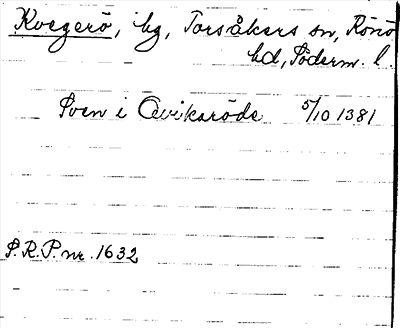 Kvegerö, hg, Torsåkers sn, Rönö
hd, Söderm. l.
Sven i Qwikaröde 5/10 1381
S.R.P. nr. 1632